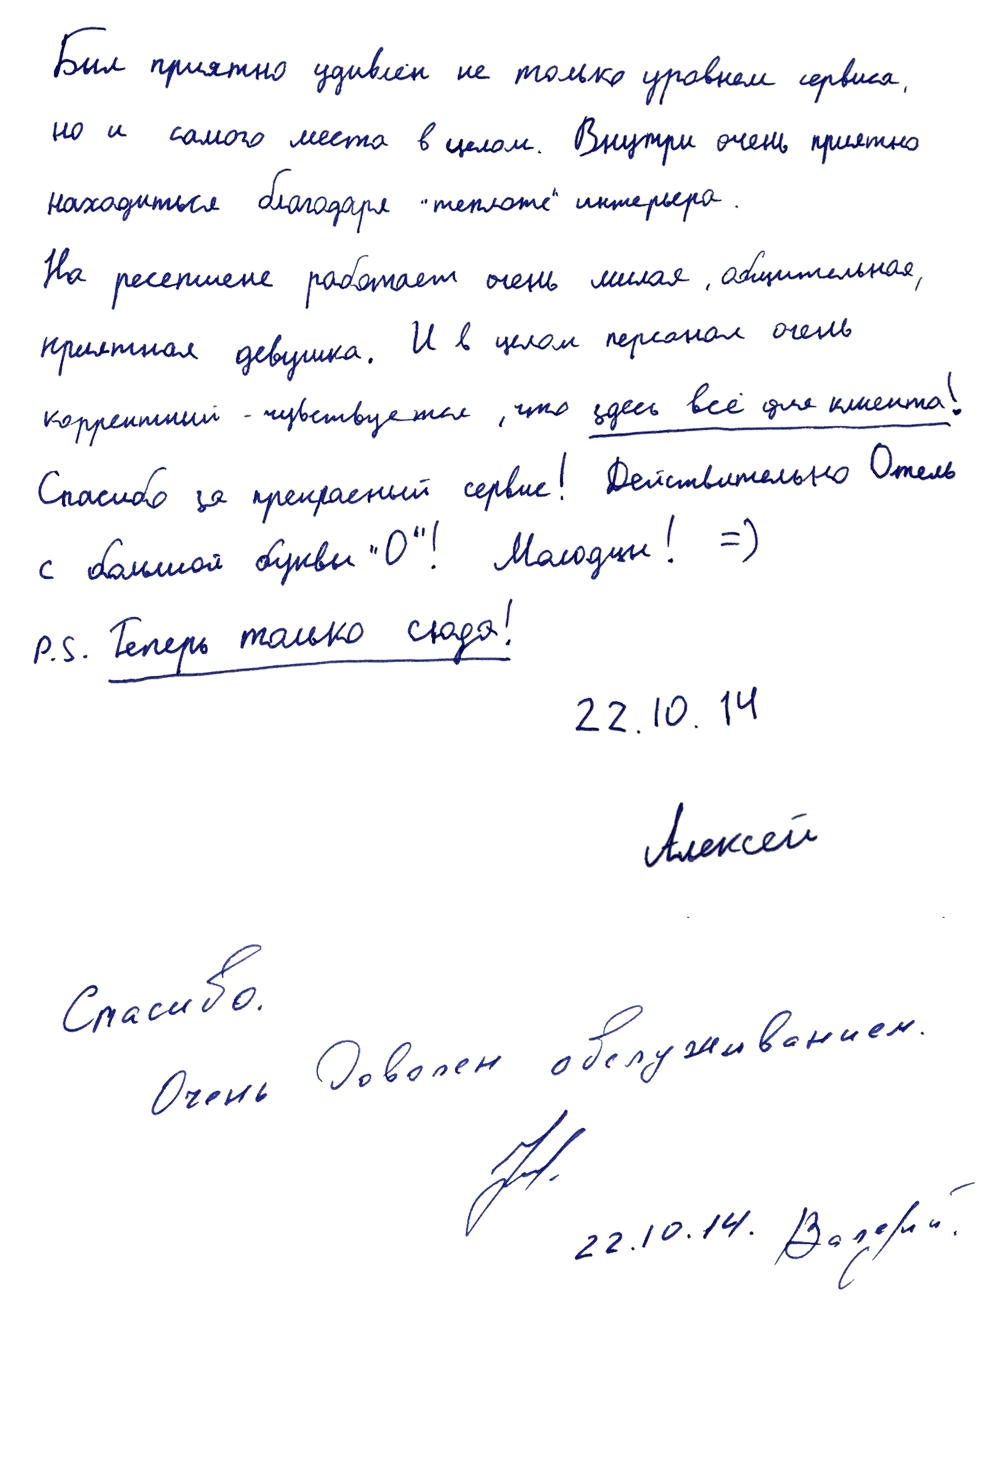 Был приятно удивлён не только уровнем сервиса,
но и самого места в целом. Внутри очень приятно
находиться благодаря "теплоте" интерьера.
На ресепшене работает очень милая, общительная,
приятная девушка. И в целом персонал очень
корректный - чувствуется, что здесь всё для клиента!
Спасибо за прекрасный сервис! Действительно Отель
с большой буквы "О"! Молодцы! =)
P.S. Теперь только сюда!
22.10.14
Алексей
Спасибо.
Очень доволен обслуживанием.
22.10.14. Валерий.